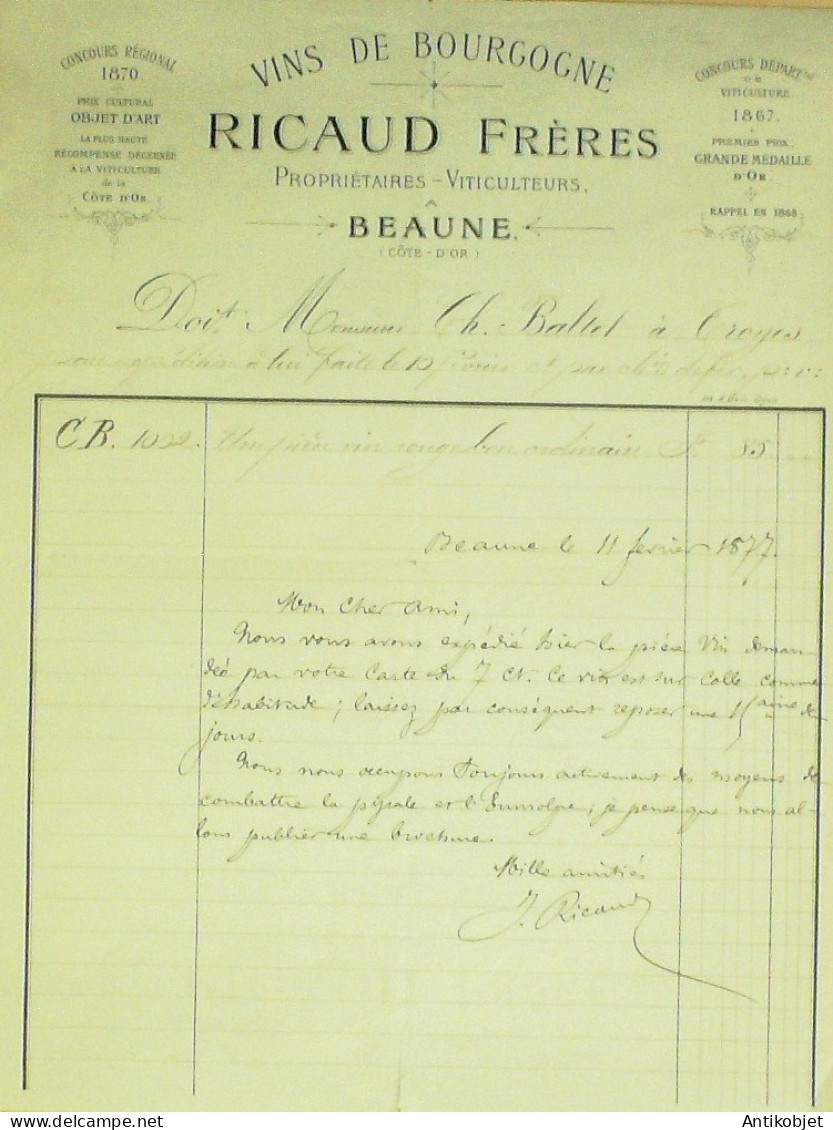 CONCOURS RÉGIONAL
1870.
PRIX CULTURAL
OBJET D'ART
LA PLUS HAUTE
RÉCOMPENSE DÉCERNÉE
A LA VITICULTURE
de la
CÔTE D'OR
VINS DE BOURGOGNE
RICAUD FRÈRES
PROPRIÉTAIRES-VITICULTEURS,
À
BEAUNE.
(CÔTE-D'OR.)
CONCOURS DÉPARTAL
DE
VITICULTURE
1867.
PREMIER PRIX
GRANDE MÉDAILLE
D'OR.
RAPPEL EN 1868
Doit Monsieur Ch. Baltet à Troyes
expédition à lui faite le 10 février et par ch. de fer
C.B. 1032. Une pièce vin rouge bon ordinaire F. 85
Beaune le 11 fevrier 1877.
Mon Cher Ami,
Nous vous avons expédié hier la pièce Vin deman
dée par votre Carte du 7 Ct. Ce vin est sur Colle comme
d'habitude; laissez par conséquent reposer une 15aine de
jours.
Nous nous occupons Toujours activement des moyens de
combattre la pyrale et l'Eumolpe; je pense que nous al-
lons publier une brochure.
Mille amitiés
J. Ricaud